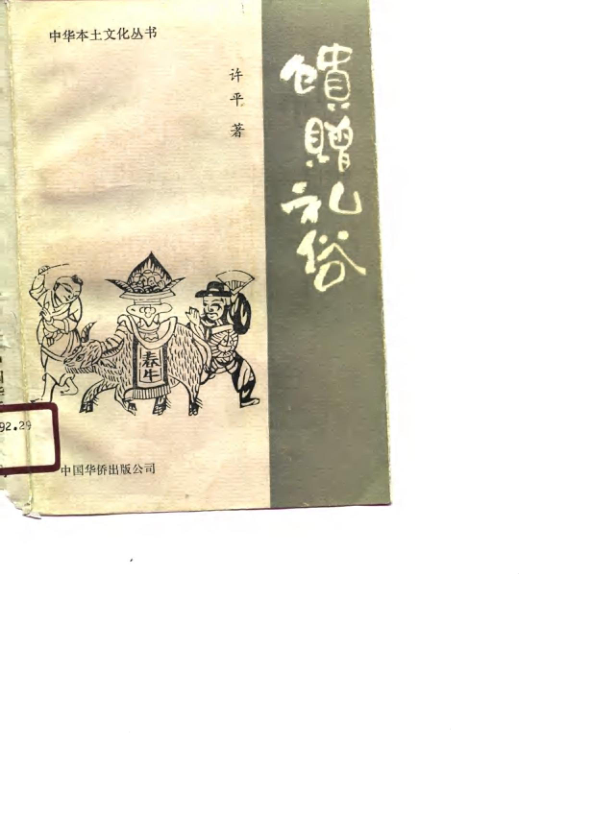 中华本土文化丛书
许平 著
馈赠礼俗
春牛
92.29
中国华侨出版公司